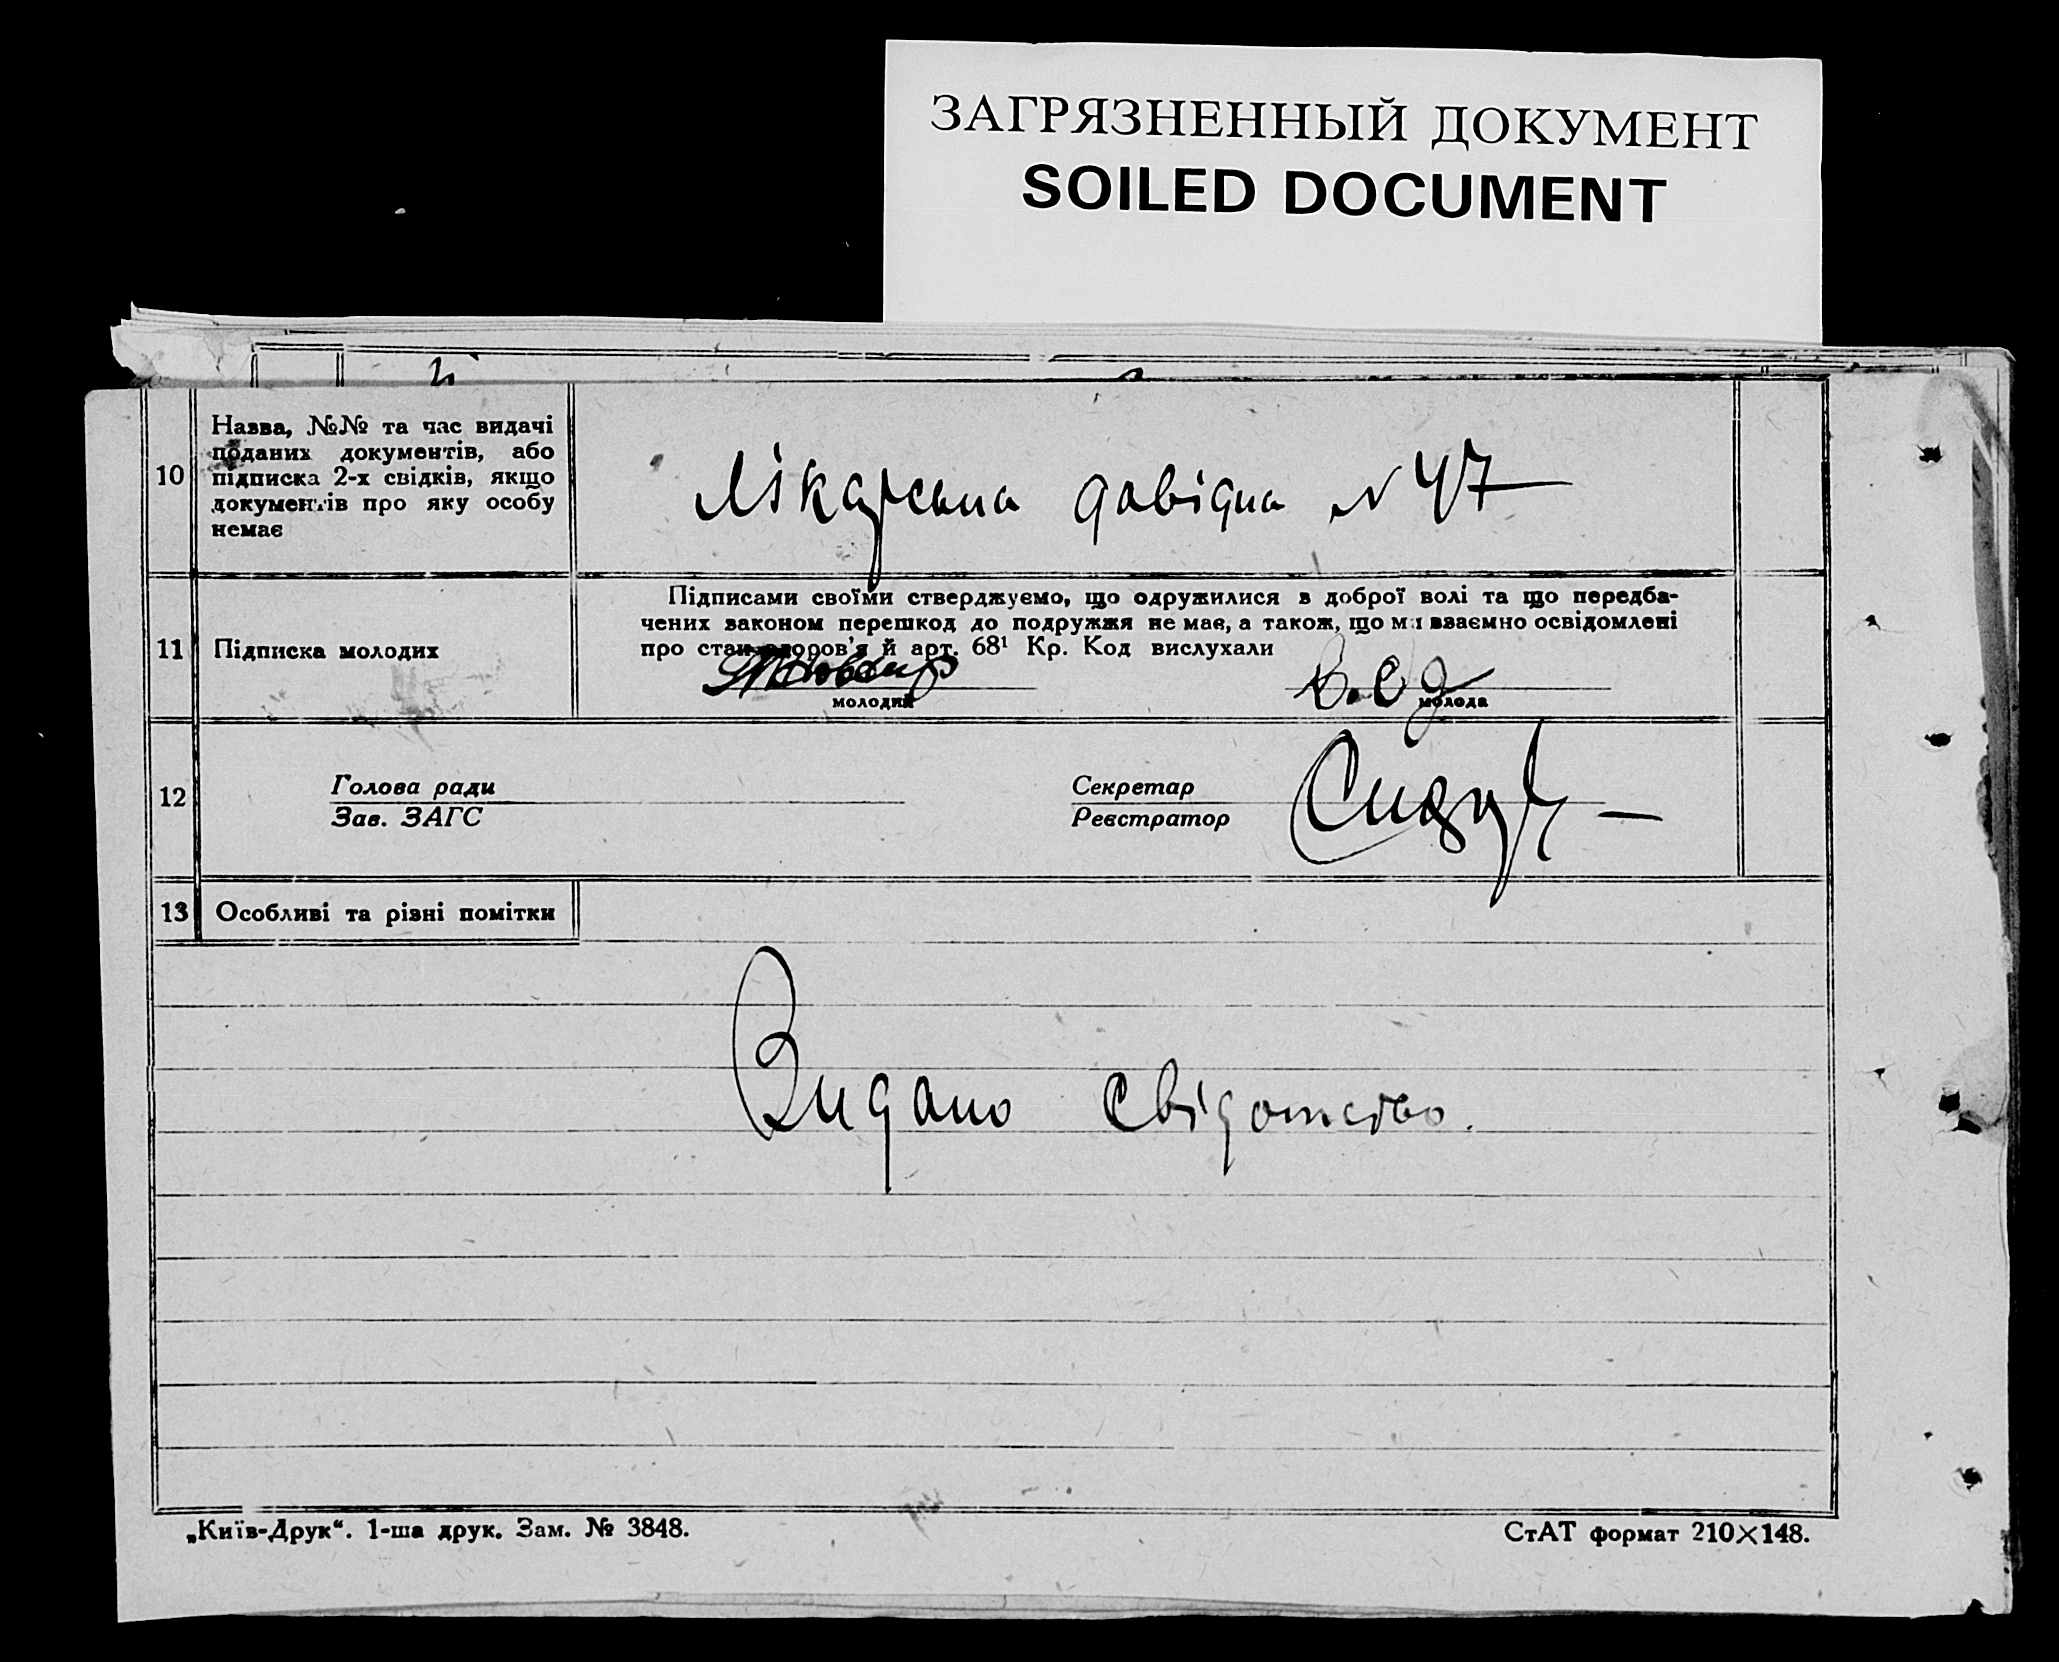 ЗАГРЯЗНЕННЫЙ ДОКУМЕНТ
SOILED DOCUMENT
10
Назва, №№ та час видачі
поданих документів, або
підписка 2-х свідків, якщо
документів про яку особу
немає
Лікарська довідка N 47
11
Підписка молодих
Підписами своїми стверджуємо, що одружилися в доброї волі та що передба-
чених законом перешкод до подружжя не має, а також, що ми взаємно освідомлені
про стан здоров'я й арт. 68¹ Кр. Код вислухали
молодий
молода
12
Голова ради
Зав. ЗАГС
Секретар
Реєстратор
13
Особливі та різні помітки
Видано свідотство.
„Київ-Друк“. 1-ша друк. Зам. № 3848.
СтАТ формат 210×148.